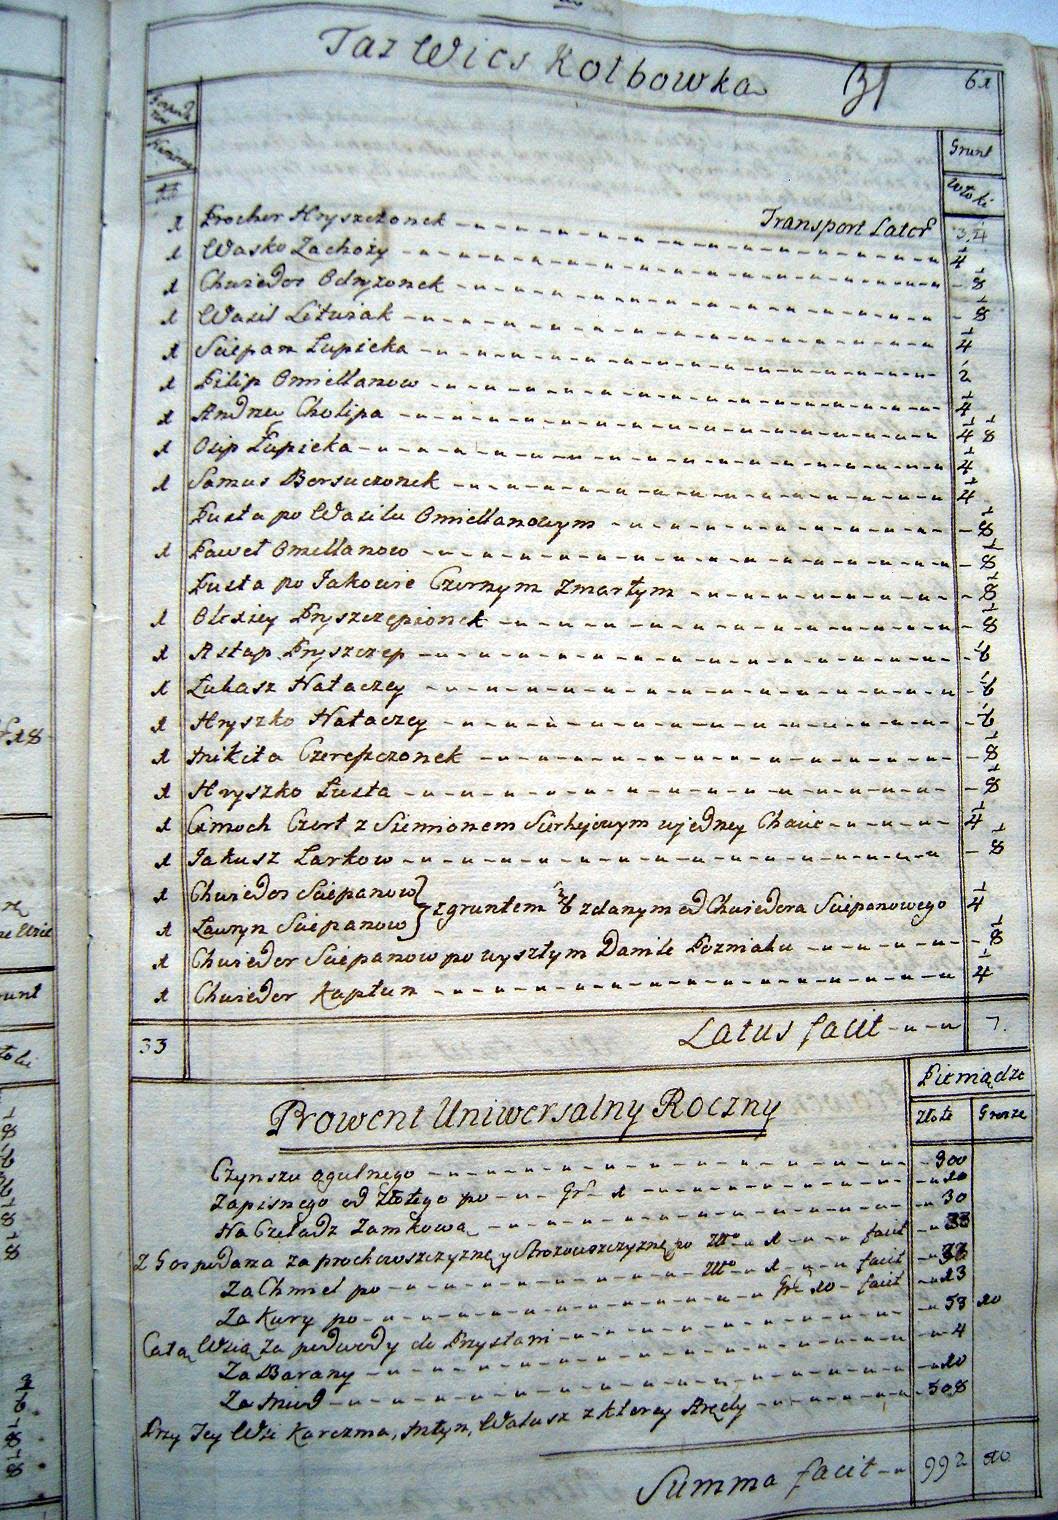 Taz Wies Kolbowka 31 61
Grunt
Włoki
Transport Lateris 3 1/4
1 Prochor Hryszczonek 1/4
1 Wasko Zachoży 1/8
1 Chwiedor Odryzonek 1/8
1 Wasil Litwiak 1/4
1 Sciepan Łapicka 1/2
1 Filip Omiellanow 1/4
1 Andrey Cholipa 1/4 1/8
1 Osip Łapicka 1/4
1 Samus Borsuczonek 1/4
Pusta po Wasilu Omiellanowym 1/8
1 Paweł Omellanow 1/8
Pusta po Jakowie Czernym Zmarłym 1/8
1 Olexiey Pryszczepionek 1/8
1 Astap Pryszczep 1/6
1 Łukasz Nataczey 1/6
1 Hryszko Nataczey 1/6
1 Mikita Czerepczonek 1/8
1 Hryszko Łusta 1/8
1 Cimoch Czort z Siemionem Sierhejowym w jedney Chacie 1/4
1 Jakusz Larkow 1/8
1 Chwiedor Sciepanow
1 Lauryn Sciepanow } z gruntem zdanym od Chwiedora Sciepanowego 1/4
1 Chwiedor Sciepanow po wyszłym Danile Pozniaku 1/8
1 Chwiedor Kapłun 1/4
33 Latus facit 7.
Pieniądze
Prowent Uniwersalny Roczny Złote Grosze
Czynszu ogulnego 300
Zapisnego od Złotego po Gr 1 10
Na Czeladz Zamkową 30
Z Gospodarza za prochowszczyznę y Strozowszczyznę po Złło 1 facit 33
Za Chmiel po Złło 1 facit 33
Za Kury po Gr 20 facit 13
Cała Wsią Za podwody do Przystani 53 10
Za Barany 4
Za Miod 10
Przy Tey Wsi Karczma, Młyn, Walusz z ktorey Arędy 508
Summa facit 992 10